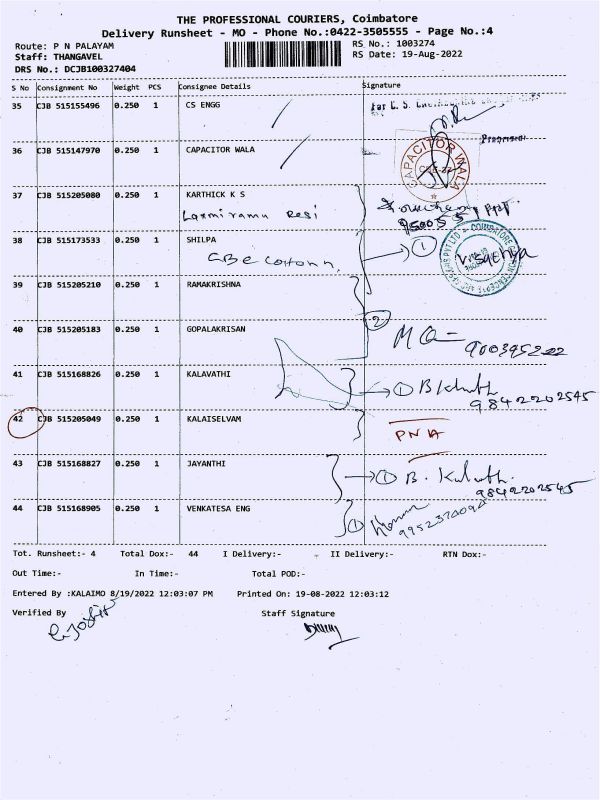 THE PROFESSIONAL COURIERS, Coimbatore
Delivery Runsheet - MO - Phone No.:0422-3505555 - Page No.:4
Route: P N PALAYAM
RS No.: 1003274
Staff: THANGAVEL
RS Date: 19-Aug-2022
DRS No.: DCJB100327404
S No Consignment No Weight PCS Consignee Details Signature
35 CJB 515155496 0.250 1 CS ENGG
36 CJB 515147970 0.250 1 CAPACITOR WALA
CAPACITOR WALA
37 CJB 515205080 0.250 1 KARTHICK K S
Laxmiramu Resi
38 CJB 515173533 0.250 1 SHILPA
1
39 CJB 515205210 0.250 1 RAMAKRISHNA
2
40 CJB 515205183 0.250 1 GOPALAKRISAN
41 CJB 515168826 0.250 1 KALAVATHI
1
9842202545
42 CJB 515205049 0.250 1 KALAISELVAM
PNA
43 CJB 515168827 0.250 1 JAYANTHI
1 B.
9842202545
44 CJB 515168905 0.250 1 VENKATESA ENG
1
Tot. Runsheet:- 4 Total Dox:- 44 I Delivery:- II Delivery:- RTN Dox:-
Out Time:- In Time:- Total POD:-
Entered By :KALAIMO 8/19/2022 12:03:07 PM Printed On: 19-08-2022 12:03:12
Verified By Staff Signature